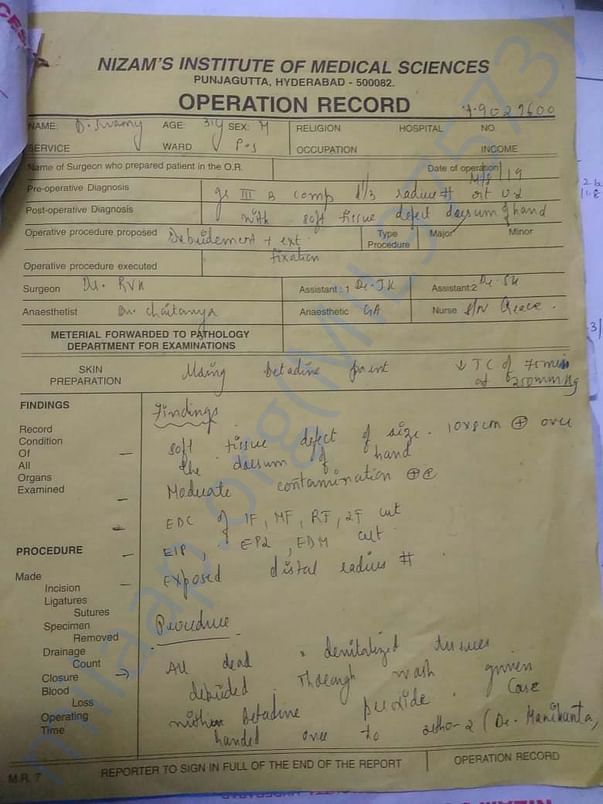 NIZAM'S INSTITUTE OF MEDICAL SCIENCES
PUNJAGUTTA, HYDERABAD - 500082.
OPERATION RECORD
NAME: D. Swamy AGE: 31y SEX: M RELIGION HOSPITAL NO
SERVICE WARD P.S OCCUPATION INCOME
Name of Surgeon who prepared patient in the O.R. Date of operation
Pre-operative Diagnosis III B comp radius #
Post-operative Diagnosis with soft tissue defect dorsum of hand
Operative procedure proposed Debridement + ext. Type Procedure Major Minor
Operative procedure executed fixation
Surgeon Dr. RVK Assistant : 1 Dr. JK Assistant:2
Anaesthetist Dr. Chaitanya Anaesthetic GA Nurse Grace.
METERIAL FORWARDED TO PATHOLOGY
DEPARTMENT FOR EXAMINATIONS
SKIN PREPARATION Using betadine paint ↓ TC of 75 min
at 250mmHg
FINDINGS
Findings
Record
Condition
Of
All
Organs
Examined
soft tissue defect of size 10x8cm ⊕ over
the dorsum of hand
Moduate contamination ⊕
EDC of IF, MF, RF, LF cut
EIP, EPL, EDM cut
Exposed distal radius #
PROCEDURE
Made
Incision
Ligatures
Sutures
Specimen
Removed
Drainage
Count
Closure
Blood
Loss
Operating
Time
Procedure
All dead devitalized tissues
debrided. Thorough wash given
betadine peroxide. Case
handed over to ortho-2 (Dr. Manikanta,
M.R. 7 REPORTER TO SIGN IN FULL OF THE END OF THE REPORT OPERATION RECORD